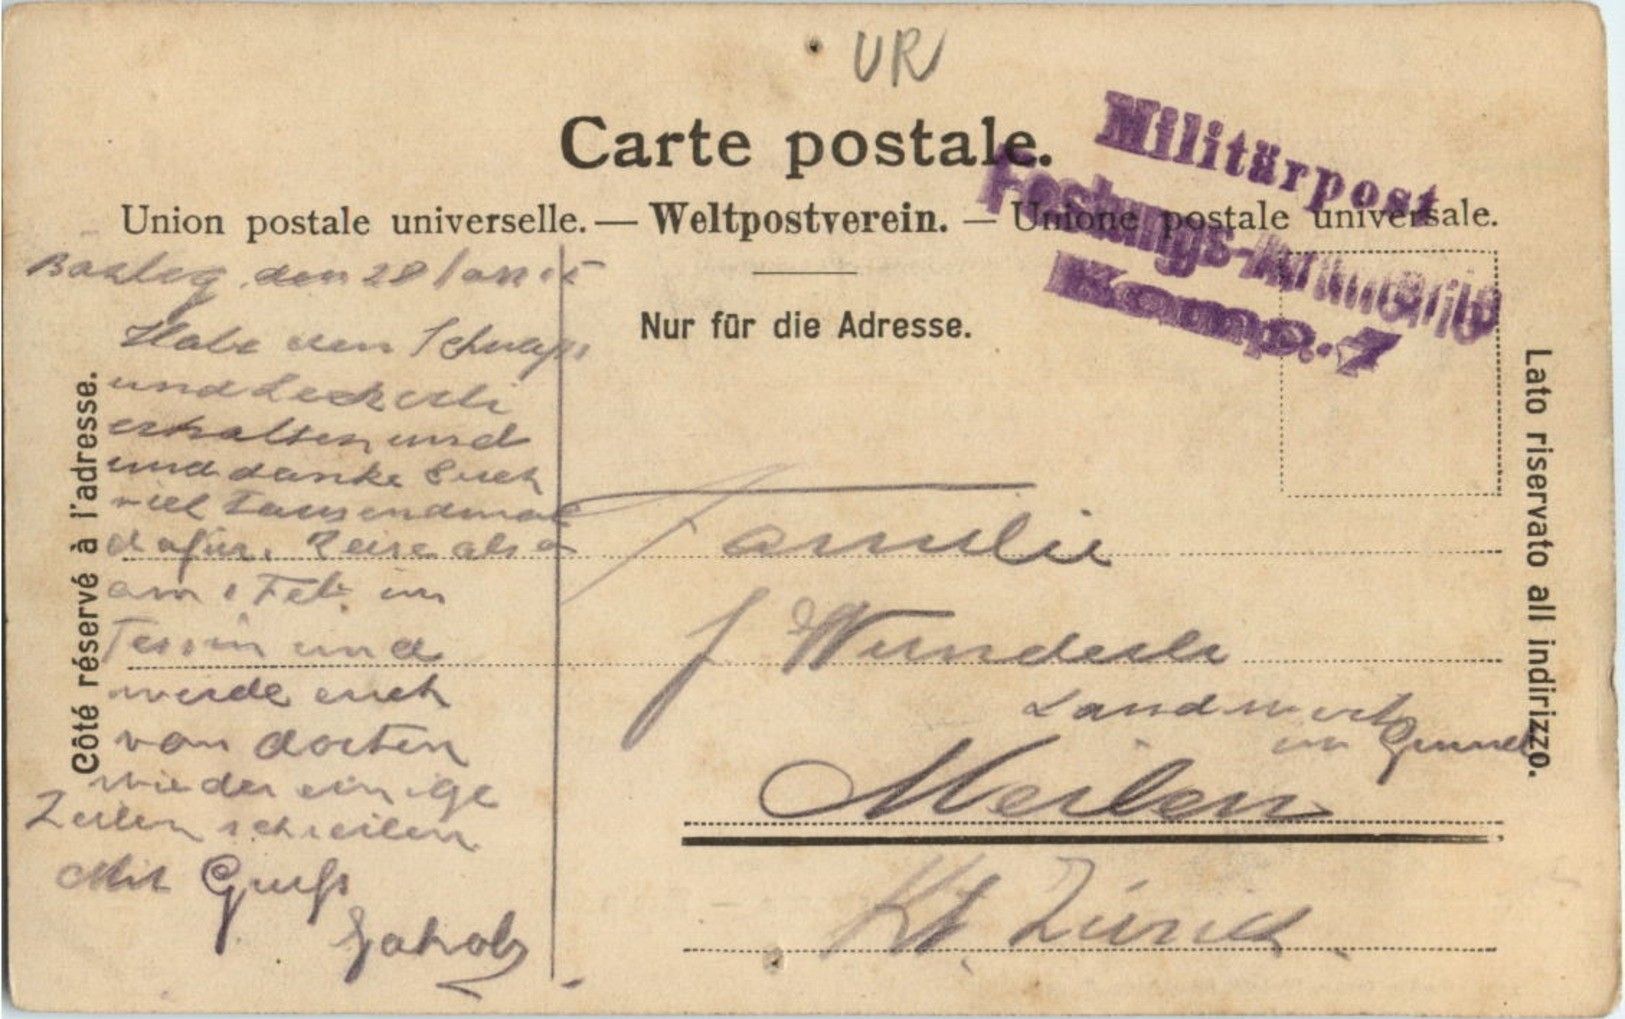 UR
Carte postale.
Militärpost
Festungs-Artillerie
Komp. 7
Union postale universelle. — Weltpostverein. — Unione postale universale.
Nur für die Adresse.
Côté réservé à l'adresse.
Lato riservato all indirizzo.
den 28 Jan 15
Habe den Schnaps
und Leckerli
erhalten und
und danke Euch
viel tausendmal
dafür. Reise also
am 1 Feb. im
Tessin und
werde euch
von dorten
wieder einige
Zeilen schreiben
Mit Gruss
Jakob
Familie
J Wunderli
Landwirt
im Grund
Meilen
Kt. Zürich